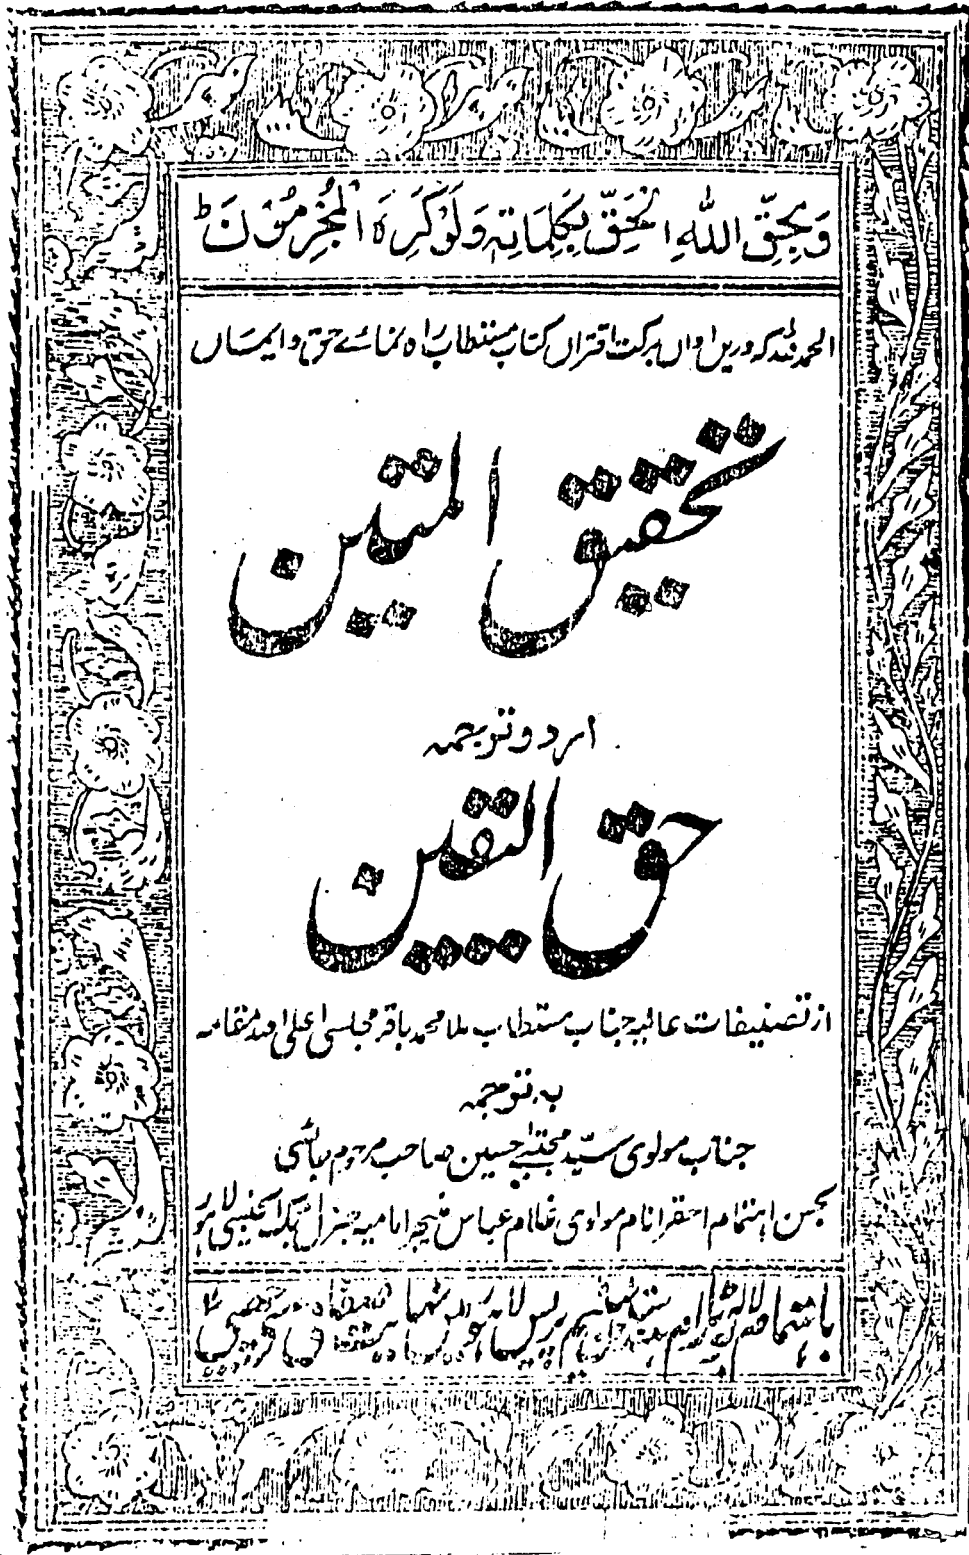 وَیُحِقُّ اللهُ الْحَقَّ بِکَلِمَاتِہٖ وَلَوْ کَرِہَ الْمُجْرِمُوْنَ ط
الحمد للہ کہ دریں اواں برکت اقتران کتاب مستطاب راہ نمائے حق و ایمان
تحقیق المتین
اردو ترجمہ
حق الیقین
از تصنیفات عالیجناب مستطاب ملا محمد باقر مجلسی اعلی اللہ مقامہ
بہ ترجمہ
جناب مولوی سید مجتبےٰ حسین صاحب مرحوم
بحسن اہتمام احقر انام مولوی غلام عباس منیجر امامیہ جنرل بک ایجنسی لاہور
باہتمام لالہ سٹیم پریس لاہور